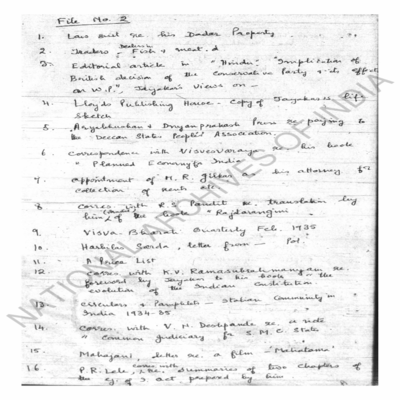 File No. 2
1. Law suit re. his Dadar Property
2. Traders - Fish & meat
3. Editorial article in "Hindu" "Implication of
British decision of the Conservative Party & its effect
on W.P." Jayakar's views on -
4. Lloyds Publishing House - Copy of Jayakar's life
Sketch
5. Aryabhushan & Dnyanprakash Press re paying to
the Deccan States People's Association.
6. Correspondence with Visvesvaraya re his book
"Planned Economy for India"
7. appointment of M.R. as his attorney for
collection of rents etc.
8. Corres. with R.S. Pandit re. translation by
him of the book "Rajtarangini"
9. Visva-Bharati Quarterly Feb. 1935
10. Harbilas Sarda, letter from - Pol.
11. A Price List
12. Corres. with K.V. Ramasubrahmanyan re.
foreword by Jayakar to his book on the
evolution of the Indian Constitution.
13. Circulars & Pamphlets - Italian Community in
India 1934-35
14. Corres. with V.M. Deshpande re. a note
"Common judiciary for S.M.C. State
15. Mahajani, letter re. a film "Mahatama"
16. P.R. Lele, corres. with re. Summaries of two chapters of
the G. of I act prepared by him.
NATIONAL ARCHIVES OF INDIA